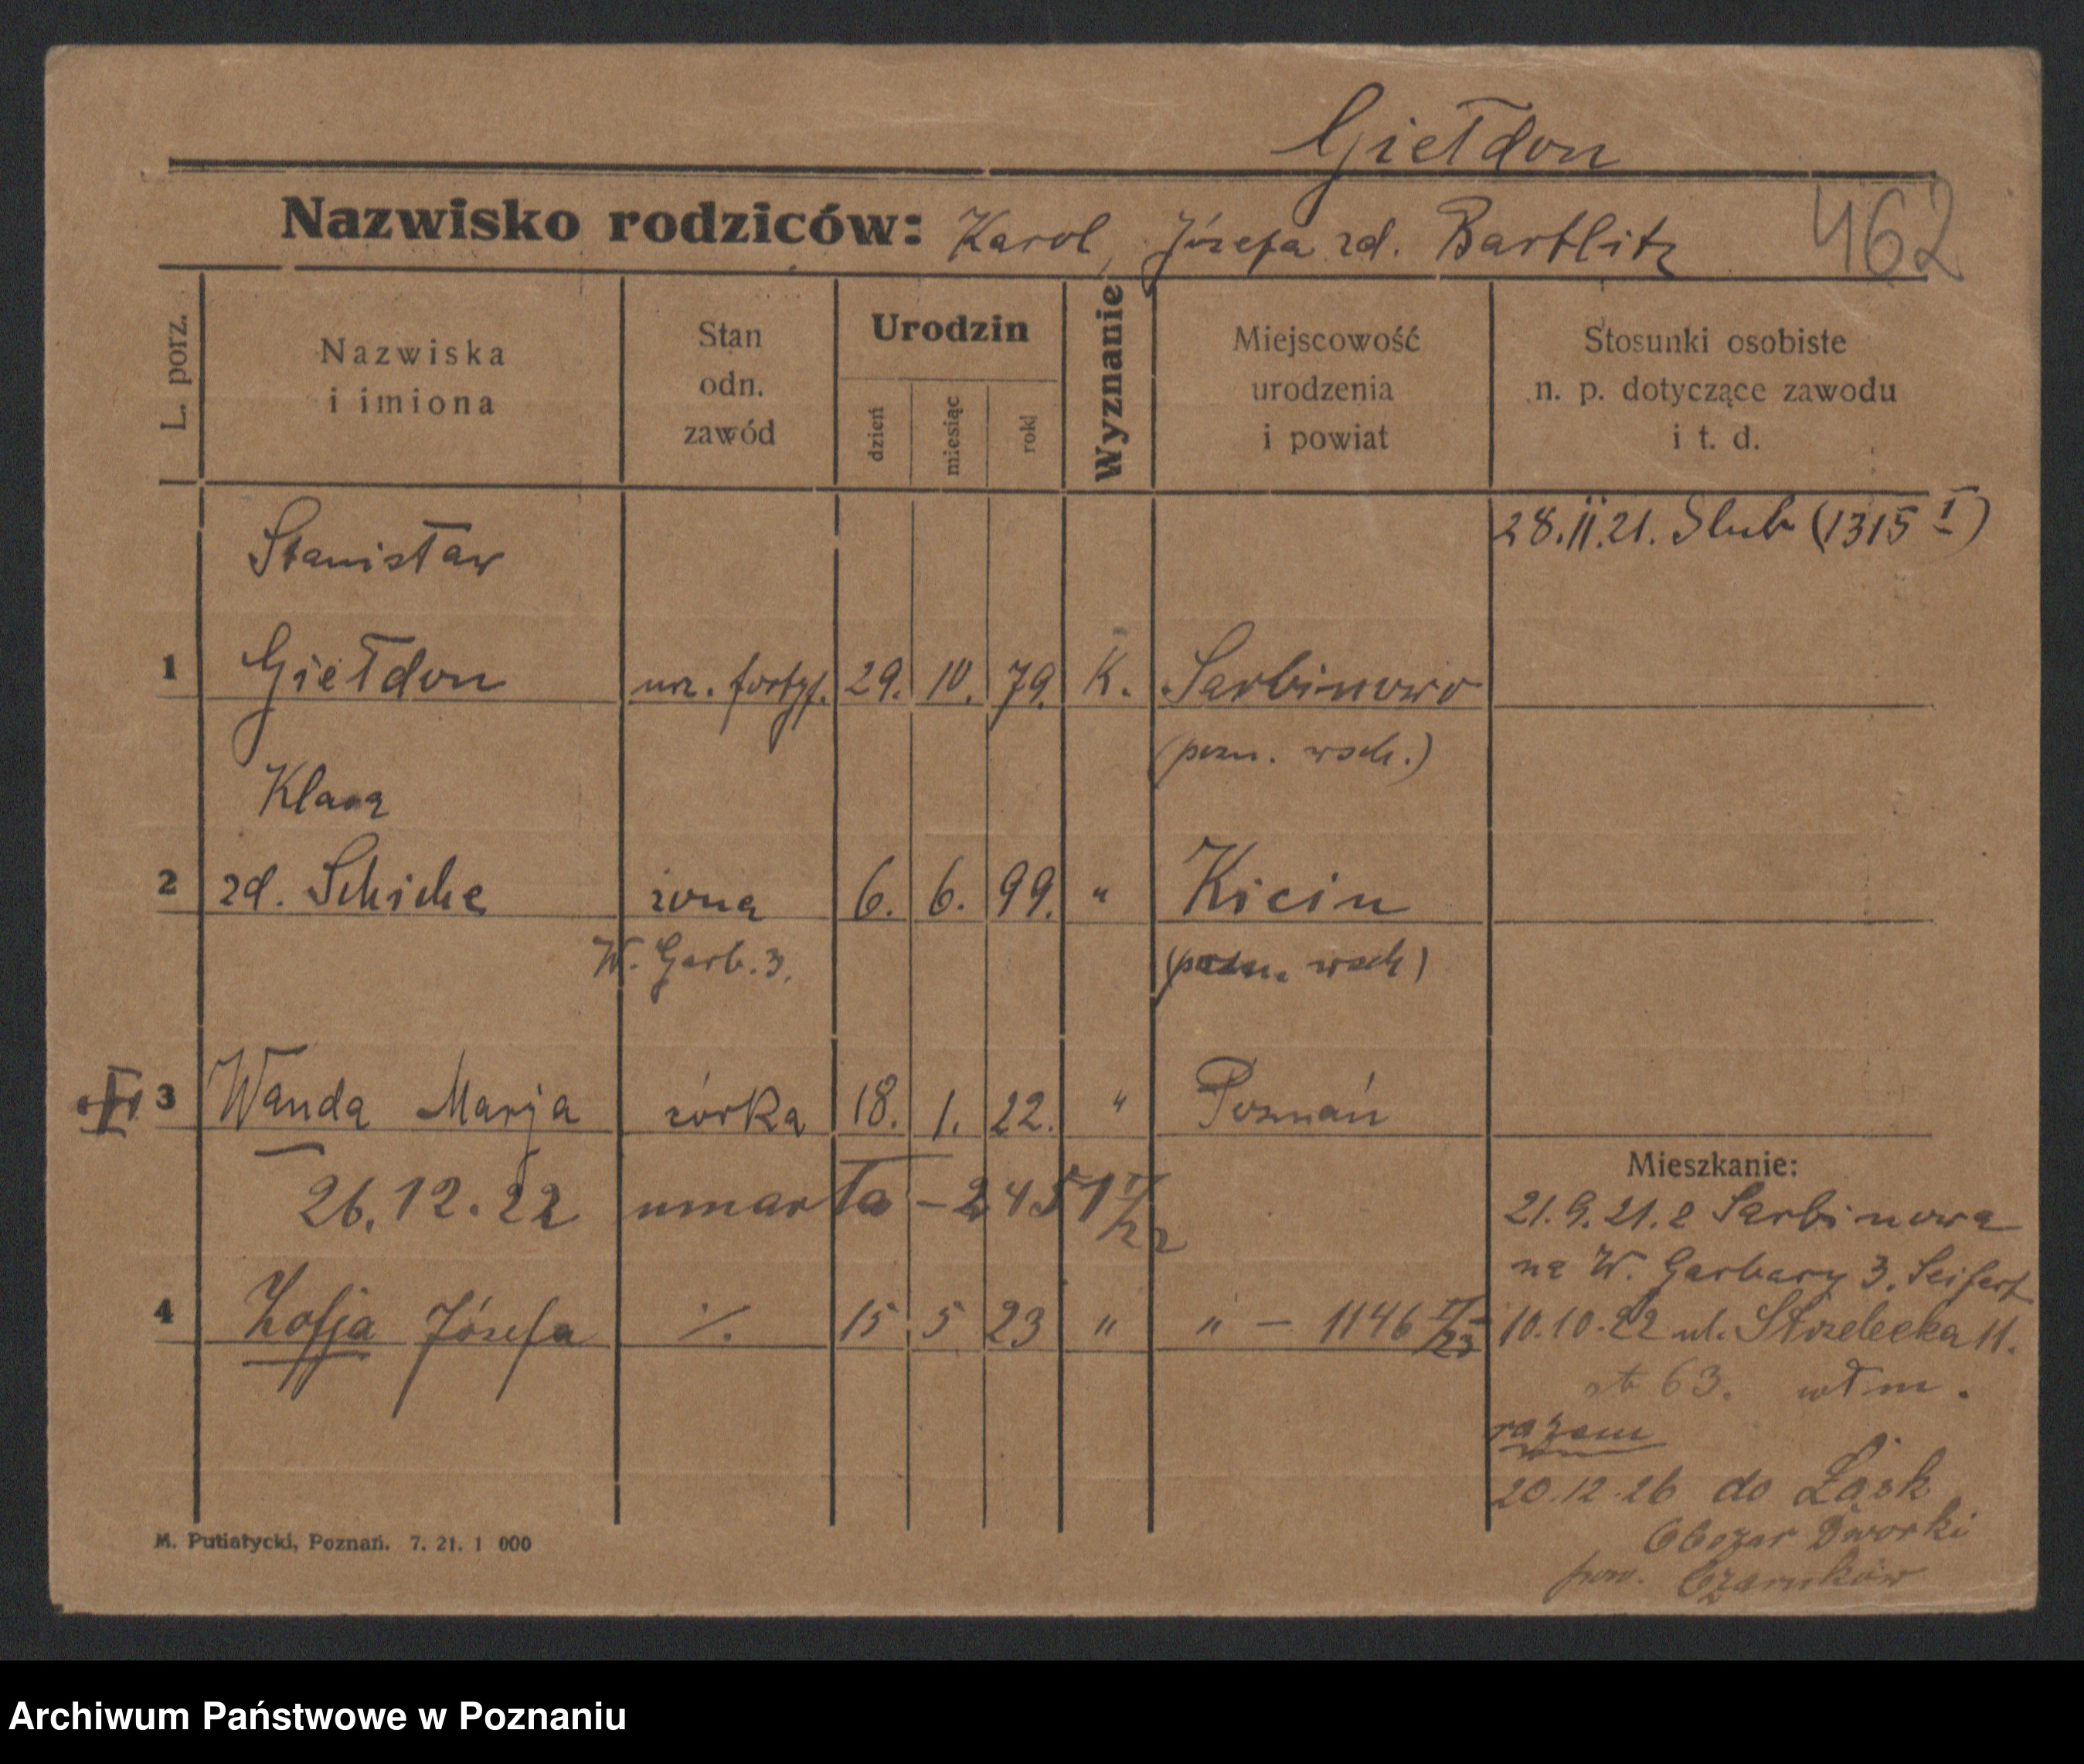 Giełdon
Nazwisko rodziców: Karol, Józefa zd. Bartlitz 462
L. porz.
Nazwiska
i imiona
Stan
odn.
zawód
Urodzin
dzień
miesiąc
rok
Wyznanie
Miejscowość
urodzenia
i powiat
Stosunki osobiste
n. p. dotyczące zawodu
i t. d.
28.II.21. Slub (1315 I)
Stanisław
1 Giełdon urz. fortyf. 29. 10. 79. K. Sarbinowo
(pozn. wsch.)
Klara
2 zd. Schiche żona 6. 6. 99. " Kicin
W. Garb. 3. (pozn. wsch)
3 Wanda Marja córka 18. 1. 22. " Poznań
26.12.22 umarła - 2451 II/22
4 Zofja Józefa ./. 15 5 23 " " - 1146 II/23
Mieszkanie:
21.9.21. z Sarbinowa
na W. Garbary 3. Seifert
10.10.22 ul. Strzelecka 11.
63. włm.
razem
20.12.26 do Łask
Obszar Dworki
pow. Czarnków
M. Putiatycki, Poznań. 7. 21. 1 000
Archiwum Państwowe w Poznaniu